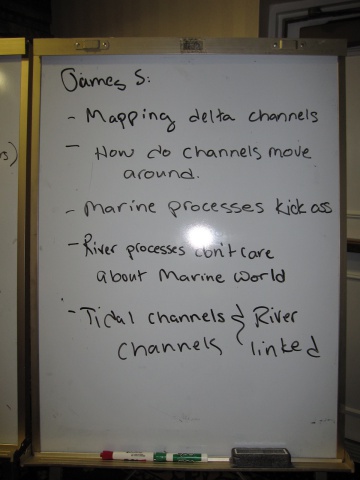 James S:
- Mapping delta channels
- How do channels move
around.
- Marine processes kick ass
- River processes don't care
about Marine world
- Tidal channels & River
channels linked